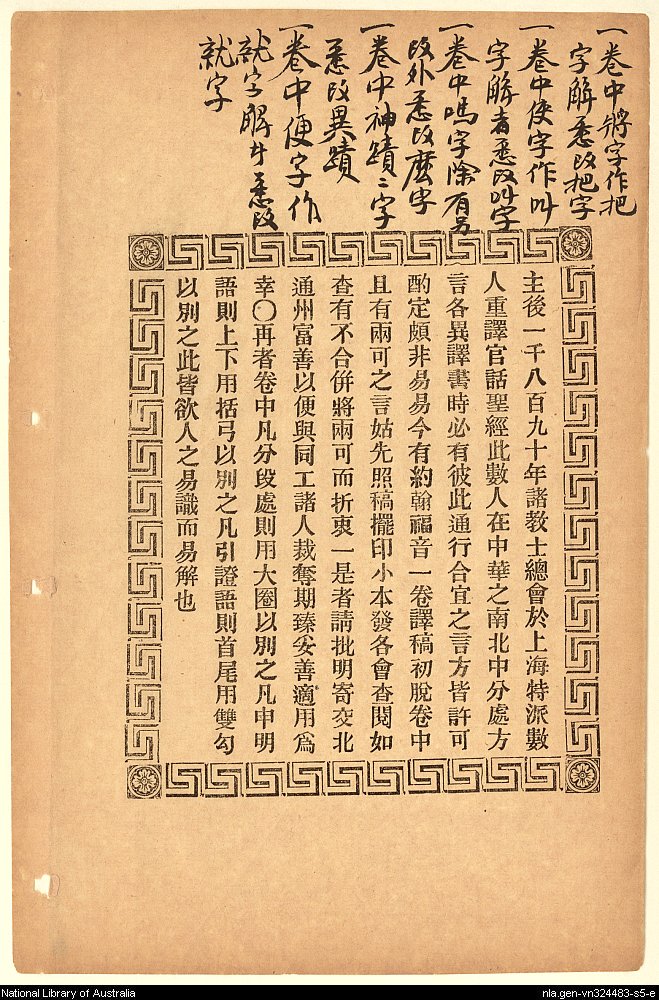 一卷中將字作把
字解悉改把字
一卷中使字作叫
字解者悉改叫字
一卷中嗎字除有另
改外悉改麼字
一卷中神蹟二字
悉改異蹟
一卷中便字作
就字解者悉改
就字
主後一千八百九十年諸教士總會於上海特派數
人重譯官話聖經此數人在中華之南北中分處方
言各異譯書時必有彼此通行合宜之言方皆許可
酌定頗非易易今有約翰福音一卷譯稿初脫卷中
且有兩可之言姑先照稿擺印小本發各會查閱如
查有不合併將兩可而折衷一是者請批明寄交北
通州富善以便與同工諸人裁奪期臻妥善適用爲
幸〇再者卷中凡分段處則用大圈以別之凡申明
語則上下用括弓以別之凡引證語則首尾用雙勾
以別之此皆欲人之易識而易解也
National Library of Australia
nla.gen-vn324483-s5-e